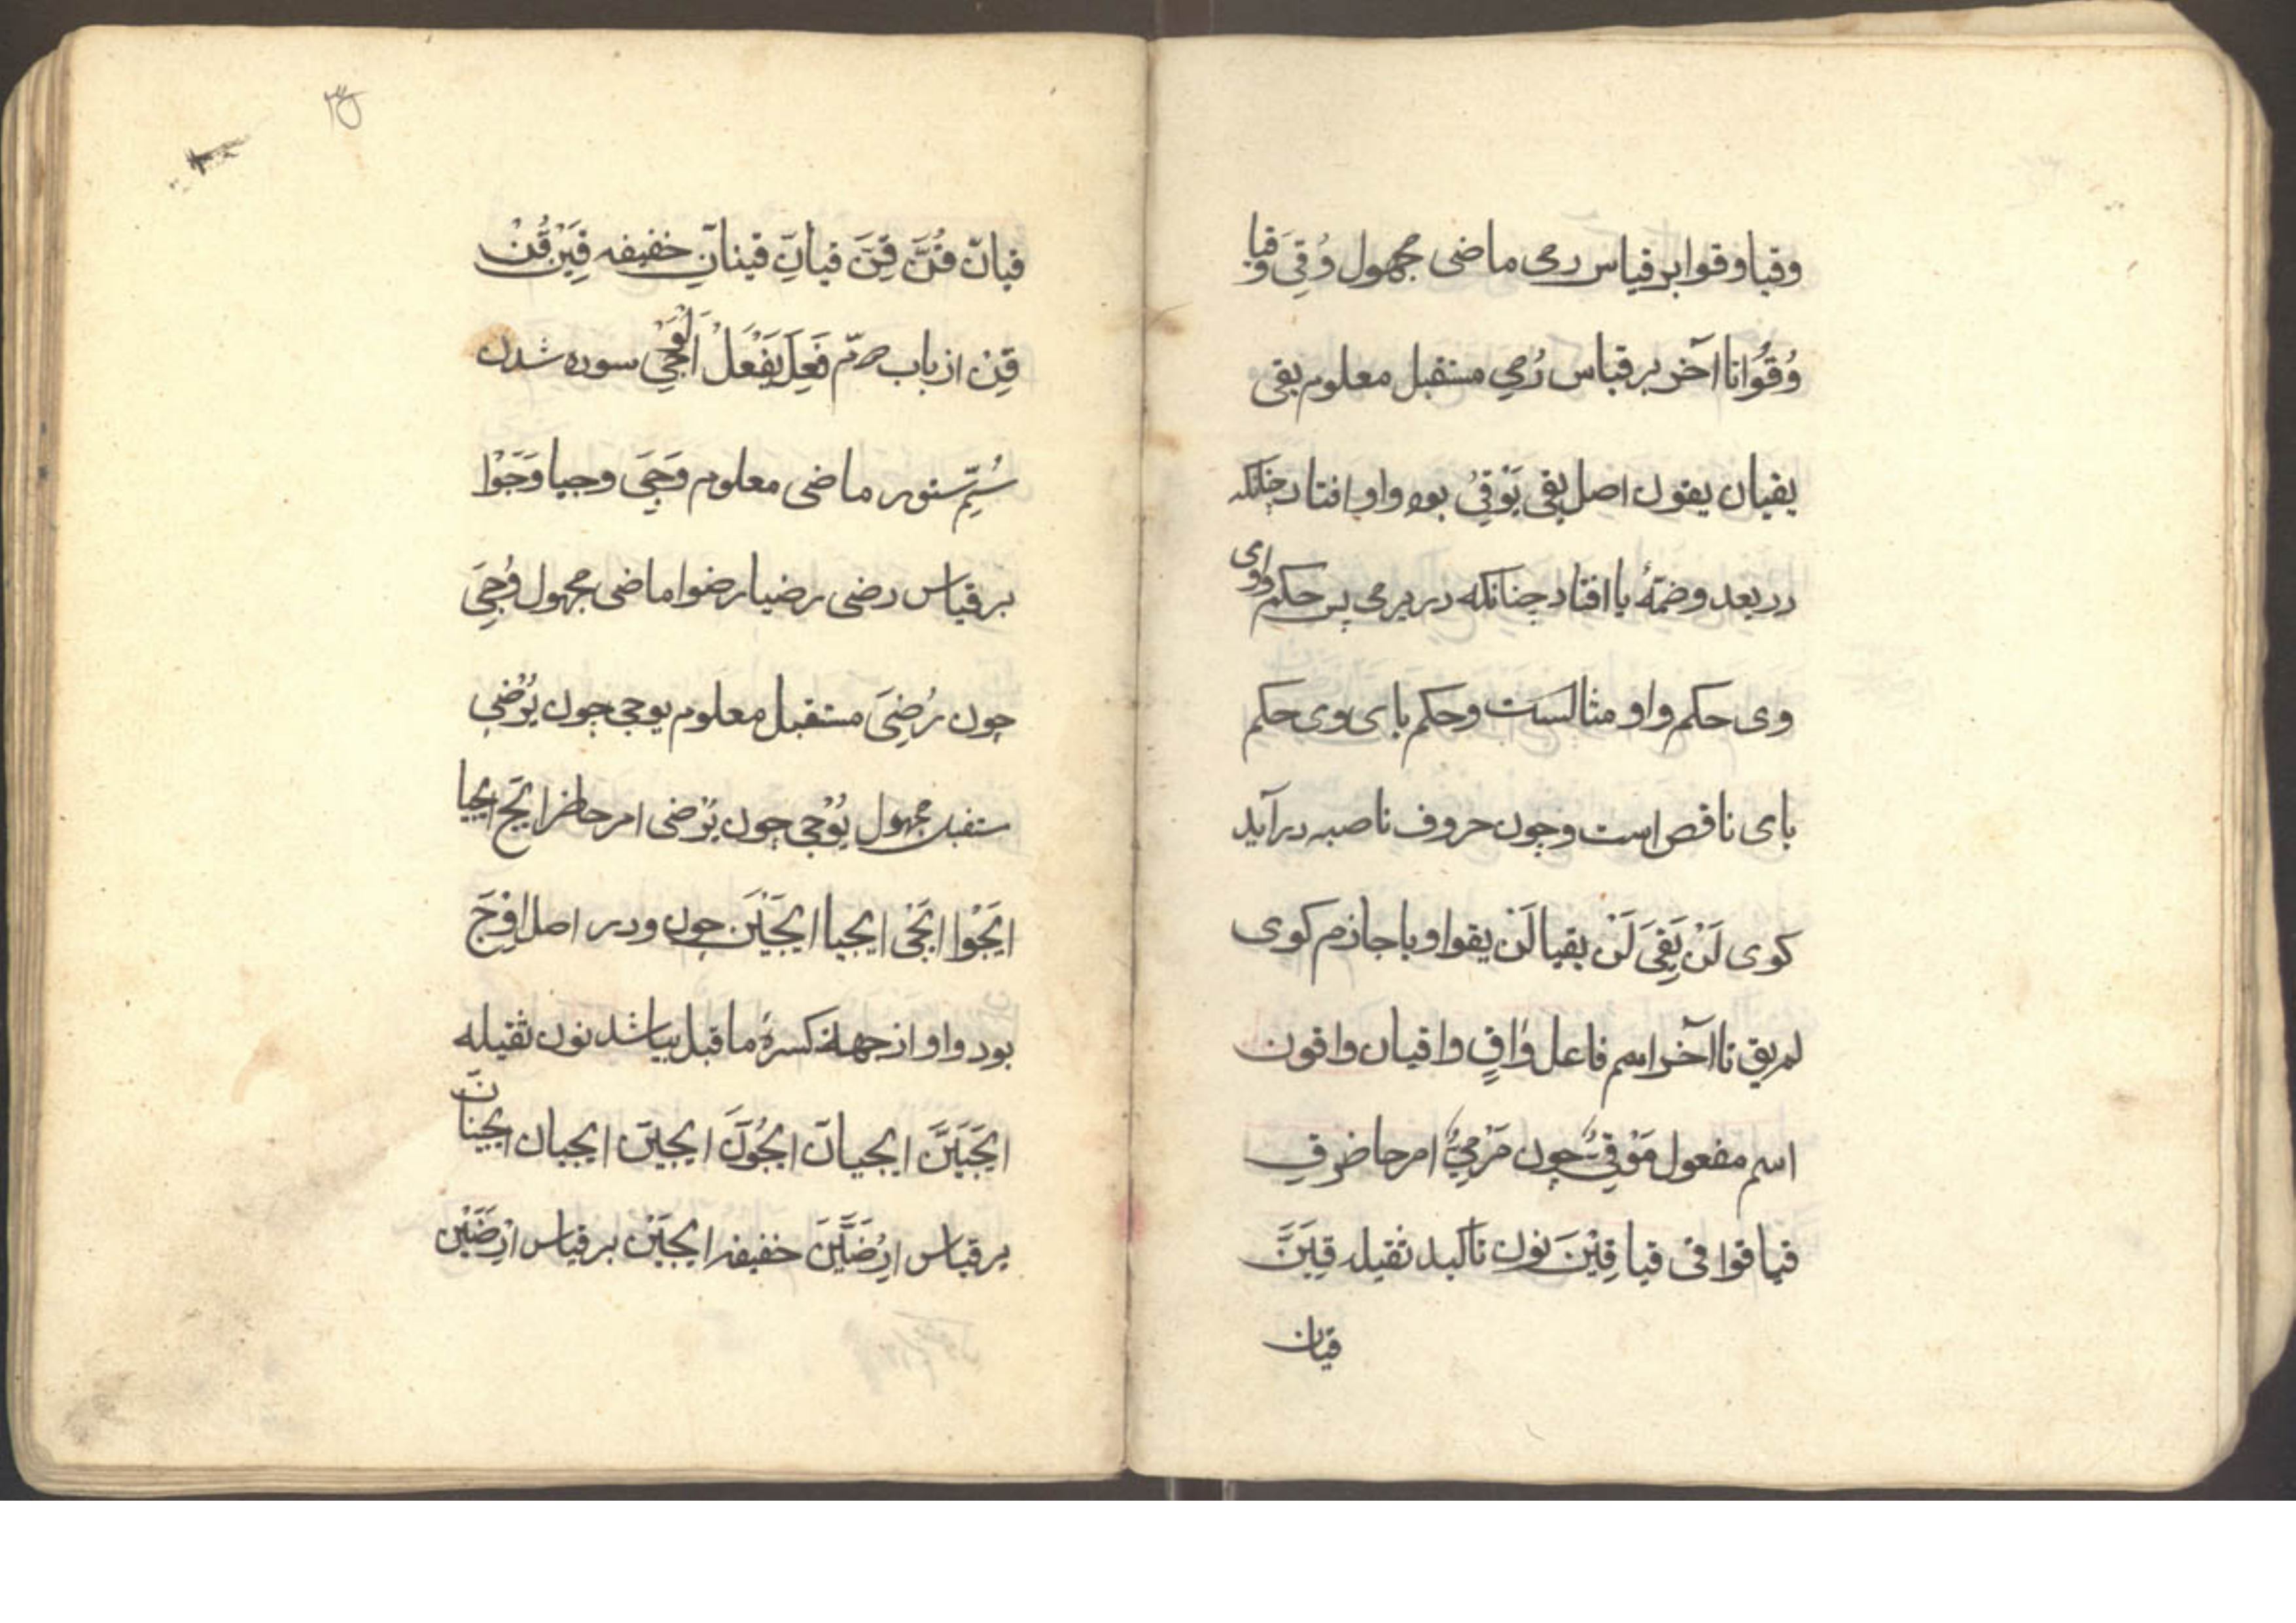 وقیا وقوا بر قیاس رمی ماضی مجهول وُقِیَ وُقیا
وُقُوْا تا آخر بر قیاس رُمِی مستقبل معلوم یقی
یقیان یقون اصل یقی یَوْقِیُ بود واو افتاد چنانکه
در یعد وضمّهٔ یا افتاد چنانکه در یرمی پس حکم واوی
وی حکم واو مثالست وحکم یای وی حکم
یای ناقص است وچون حروف ناصبه درآید
کوی لَنْ یَقِیَ لَنْ یقیا لَنْ یقوا وبا جازم کوی
لم یق تا آخر اسم فاعل وَاقٍ واقیان واقون
اسم مفعول مَوْقِیٌّ چون مَرْمِیٌّ امر حاضر قِ
قیا قوا قی قیا قِیْنَ نون تاکید ثقیله قِیَنَّ
قیان
قیانّ قُنَّ قِنَّ قیانِّ قینانِّ خفیفه قِیَنْ قُنْ
قِنْ از باب دوّم فَعِلَ یَفْعَلُ اَلْوَجْیُ سوده شدن
سُمّ ستور ماضی معلوم وَجِیَ وجیا وَجَوْا
بر قیاس رضی رضیا رضوا ماضی مجهول وُجِیَ
چون رُضِیَ مستقبل معلوم یوجی چون یَرْضی
ستقبل مجهول یُوْجی چون یُرْضی امر حاضر ایجَ ایجیا
ایجَوْا ایجَیْ ایجیا ایجَیْنَ چون ودر اصل اِوْجَ
بود واو از جهة کسرهٔ ما قبل یا شد نون ثقیله
ایجَیَنَّ ایجیانّ ایجَوُنَّ ایجینّ ایجیان ایجینانّ
بر قیاس اِرْضَیَنَّ خفیفه ایجیَنْ بر قیاس اِرْضَیَنْ